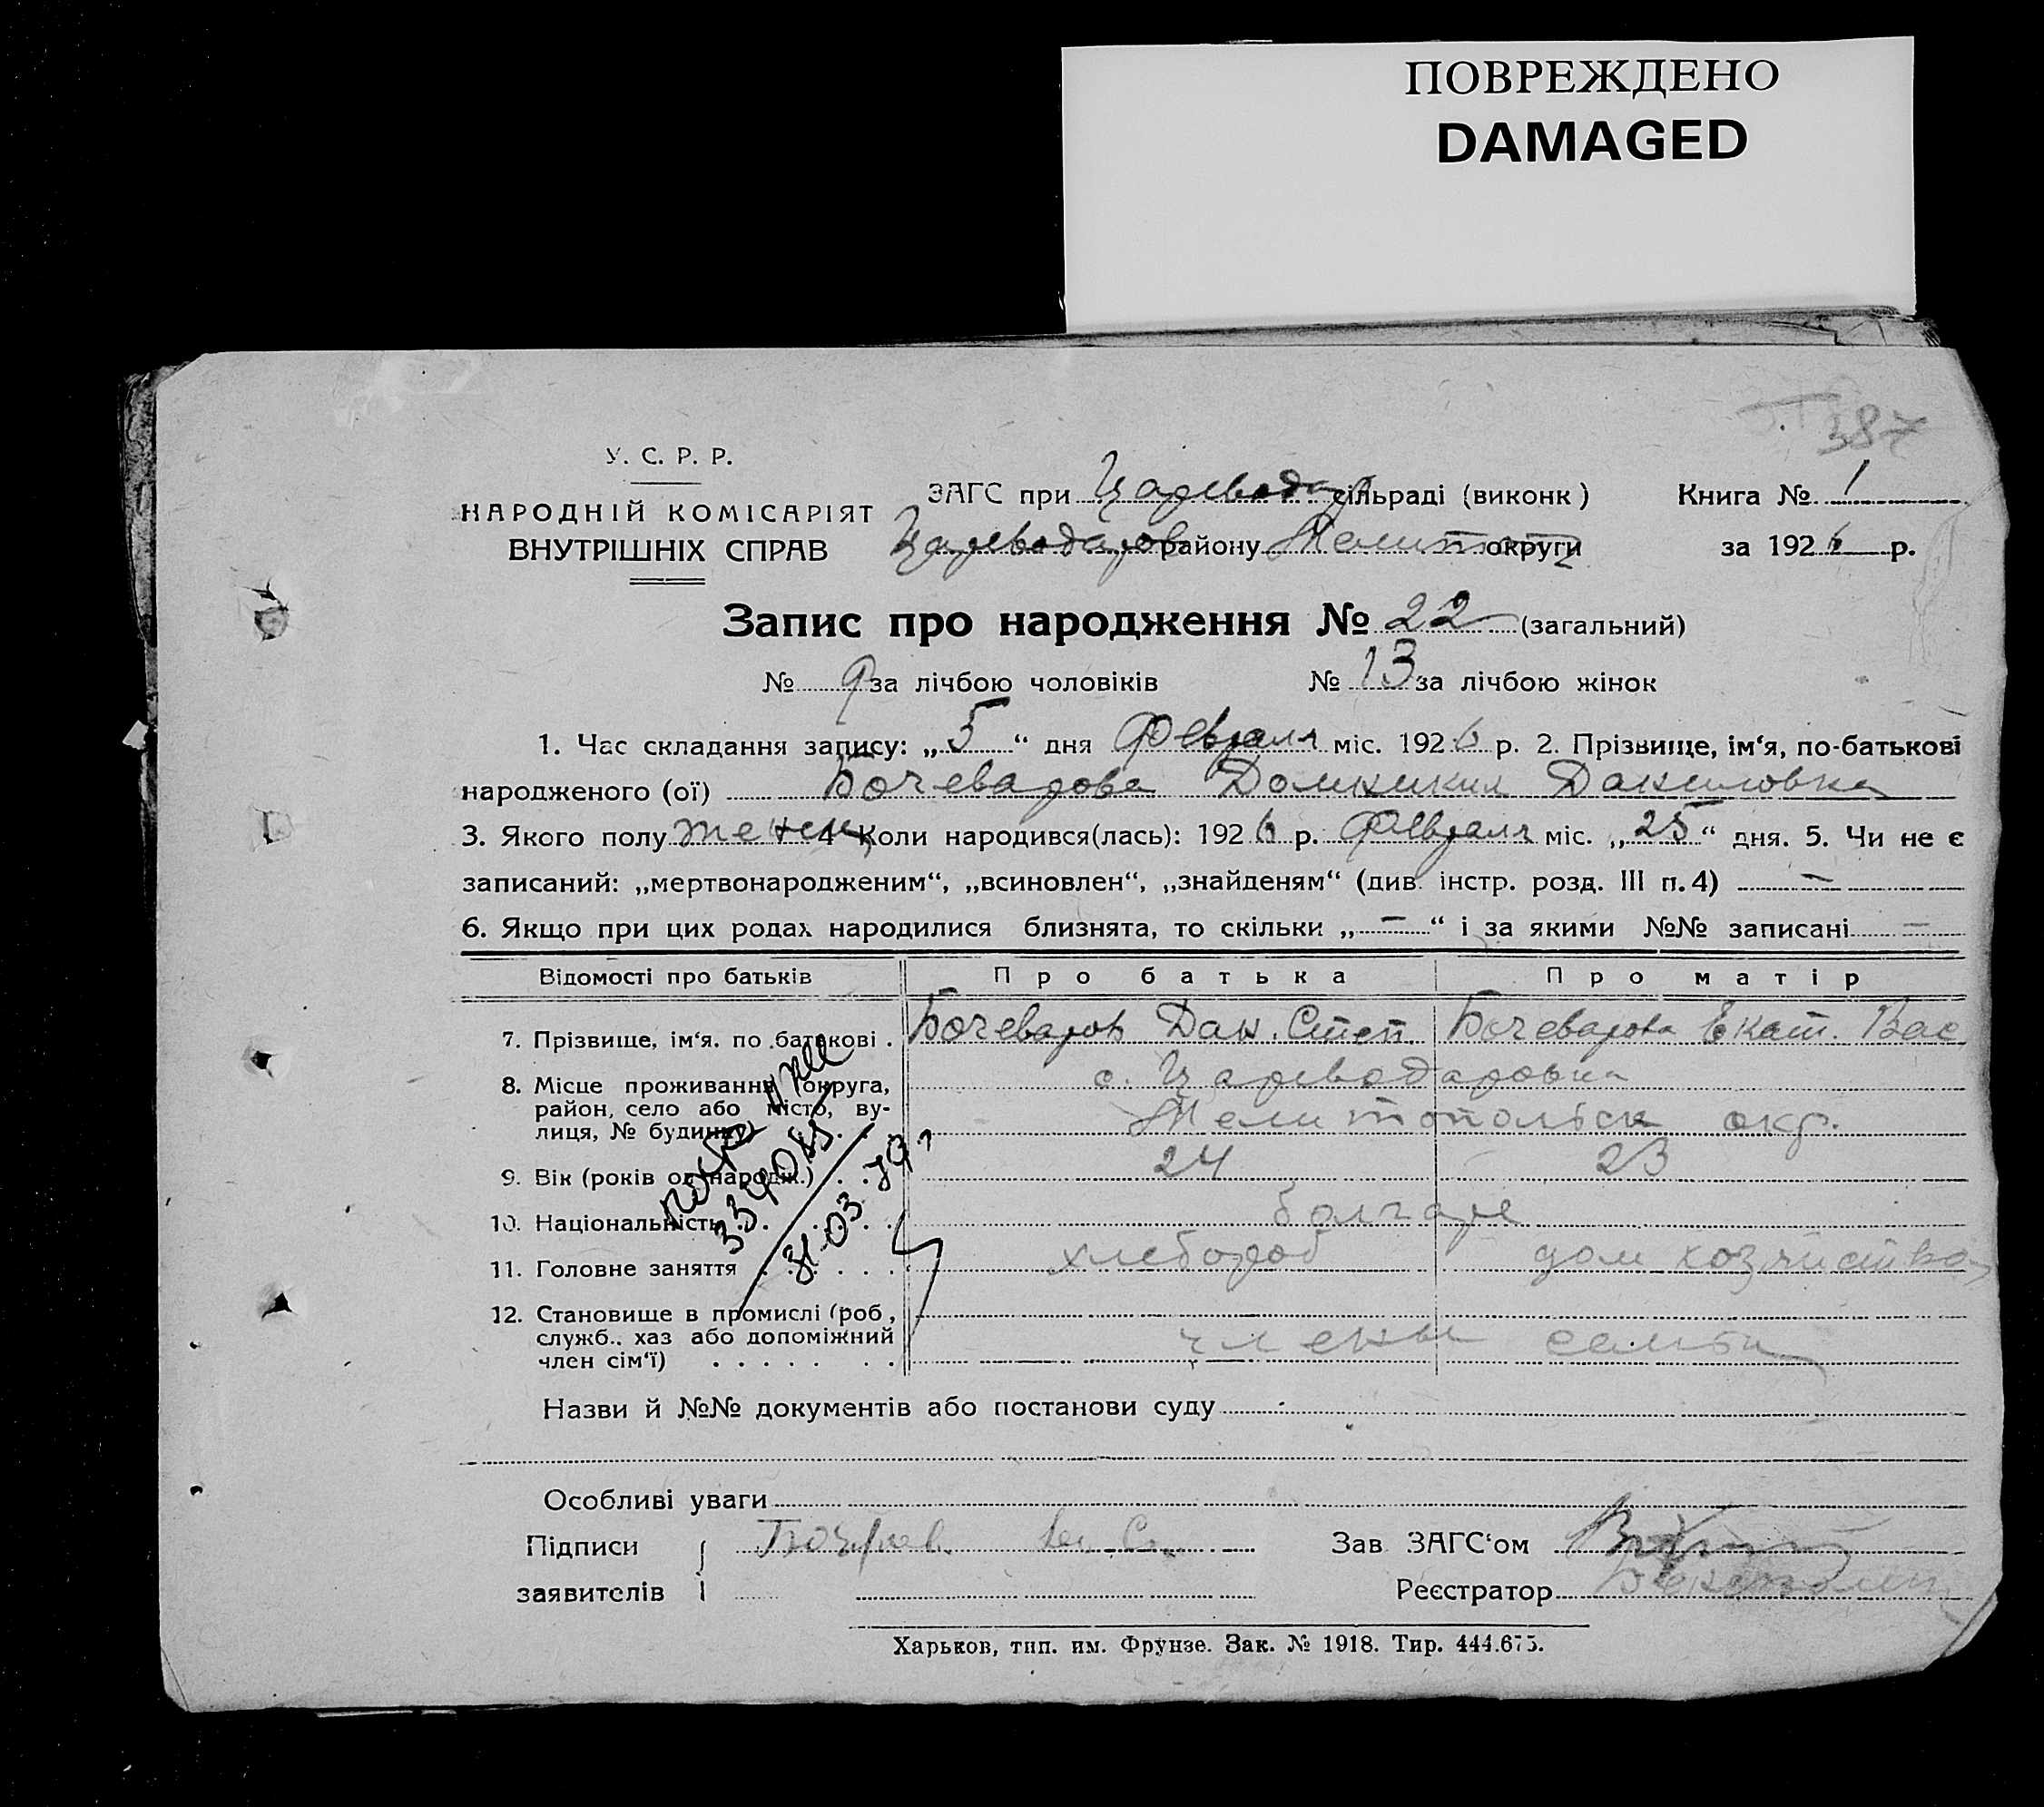 ПОВРЕЖДЕНО
DAMAGED
387
У. С. Р. Р.
НАРОДНІЙ КОМІСАРІЯТ
ВНУТРІШНІХ СПРАВ
ЗАГС при Цареводар сільраді (виконк) Книга № 1
Цареводаров району Мелитоп округи за 1926 р.
Запис про народження № 22 (загальний)
№ 9 за лічбою чоловіків № 13 за лічбою жінок
1. Час складання запису: „5“ дня Февраля міс. 1926 р. 2. Прізвище, ім‘я, по-батькові
народженого (ої) Бочеварова Домникия Даниловна
3. Якого полу женск 4 Коли народився(лась): 1926 р. Февраля міс. „25“ дня. 5. Чи не є
записаний: „мертвонародженим“, „всиновлен“, „знайденям“ (див. інстр. розд. III п. 4) —
6. Якщо при цих родах народилися близнята, то скільки „—“ і за якими №№ записані —
Відомості про батьків Про батька Про матір
7. Прізвище, ім‘я. по батькові . Бочеваров Дан. Степ. Бочеварова Екат. Вас
8. Місце проживання (округа, район, село або місто, вулиця, № будинку) с. Цареводаровка
Мелитопольск окр.
9. Вік (років од народж.) . . 24 23
10. Національність . . . . . болгаре
11. Головне заняття . . . . . . хлебороб дом хозяйства
12. Становище в промислі (роб, служб.. хаз або допоміжний член сім‘ї) . . . . . . . члены семьи
334085
31.03.79
Назви й №№ документів або постанови суду
Особливі уваги
Підписи
заявителів
Зав ЗАГС‘ом
Реєстратор
Харьков, тип. им. Фрунзе. Зак. № 1918. Тир. 444.675.